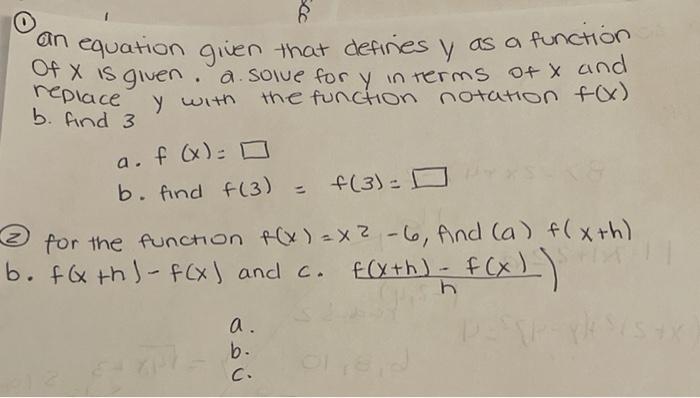 ① an equation given that defines y as a function
Of x is given. a. solve for y in terms of x and
replace y with the function notation f(x)
b. find 3
a. f (x) = □
b. find f(3) = f(3) = □
② for the function f(x) = x² - 6, find (a) f(x+h)
b. f(x+h) - f(x) and c. f(x+h) - f(x) / h )
a.
b.
c.